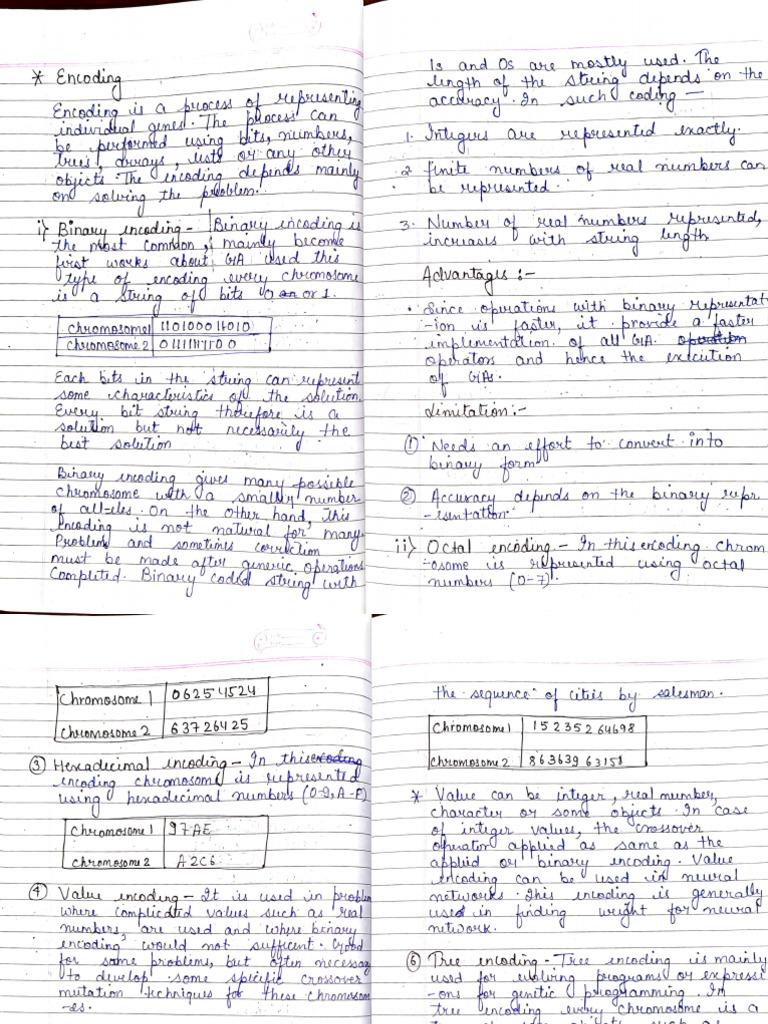 * Encoding
Encoding is a process of representing
individual genes. The process can
be performed using bits, numbers,
trees, arrays, lists or any other
objects. The encoding depends mainly
on solving the problem.
i) Binary encoding - Binary encoding is
the most common, mainly become
first works about GA used this
type of encoding every chromosome
is a string of bits 0 or 1.
Chromosome1 110100011010
Chromosome 2 011111111100
Each bits in the string can represent
some characteristics of the solution.
Every bit string therefore is a
solution but not necessarily the
best solution
Binary encoding gives many possible
chromosome with a smally number
of all-eles. On the other hand, this
encoding is not natural for many
Problem and somtimes correction
must be made after generic operations
Completed. Binary coded string with
1s and 0s are mostly used. The
length of the string depends on the
accuracy. In such coding —
1. Integers are represented exactly.
2. finite numbers of real numbers can
be represented.
3. Number of real numbers represented,
increases with string length
Advantages :-
• Since operations with binary representat-
-ion is faster, it provide a faster
implementation of all GA operation
operators and hence the execution
of GAs.
Limitation :-
① Needs an effort to convert into
binary form
② Accuracy depends on the binary repr
-esentation.
ii) Octal encoding - In this encoding Chrom
-osome is represented using octal
numbers (0-7).
Chromosome 1 06254524
Chromosome 2 63726425
③ Hexadecimal encoding - In this encoding
encoding chromosome is represented
using hexadecimal numbers (0-9, A-F)
Chromosome 1 97AE
Chromosome 2 A2C6
④ Value encoding - It is used in problem
where complicated values such as real
numbers, are used and where binary
encoding would not sufficent. Good
for some problems, but often necessary
to develop some specific crossover
mutation techniques for these chromosom
-es.
the sequence of cities by salesman.
Chromosome1 15235264698
Chromosome 2
* Value can be integer, real number,
character or some objects. In case
of integer values, the crossover
operator applied as same as the
applied or binary encoding. Value
encoding can be used in neural
networks. This encoding is generally
used in finding weight for neural
network.
⑥ Tree encoding - Tree encoding is mainly
used for evolving programs or expressi
-ons for genitic programming. In
tree encoding every chromosome is a